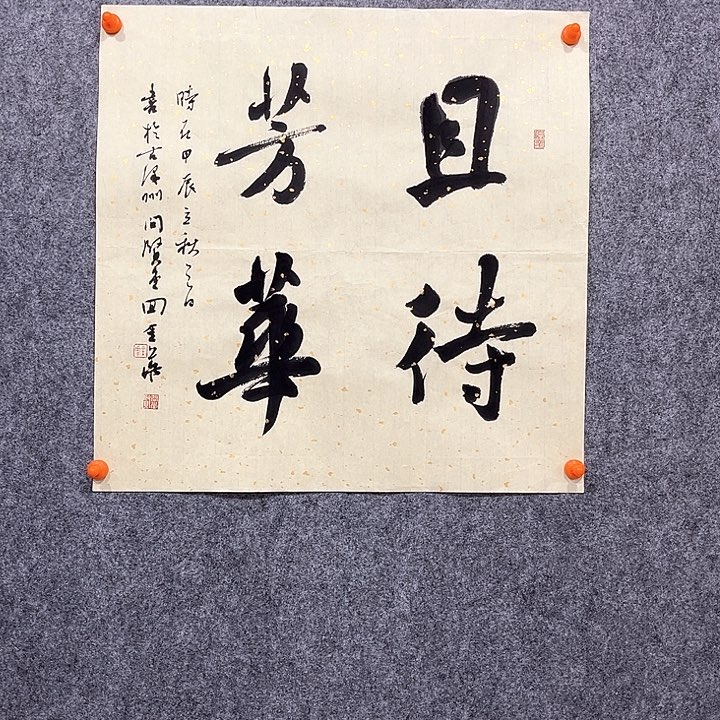 且待
芳華
時在甲辰立秋之日
書於古澤州問賢堂